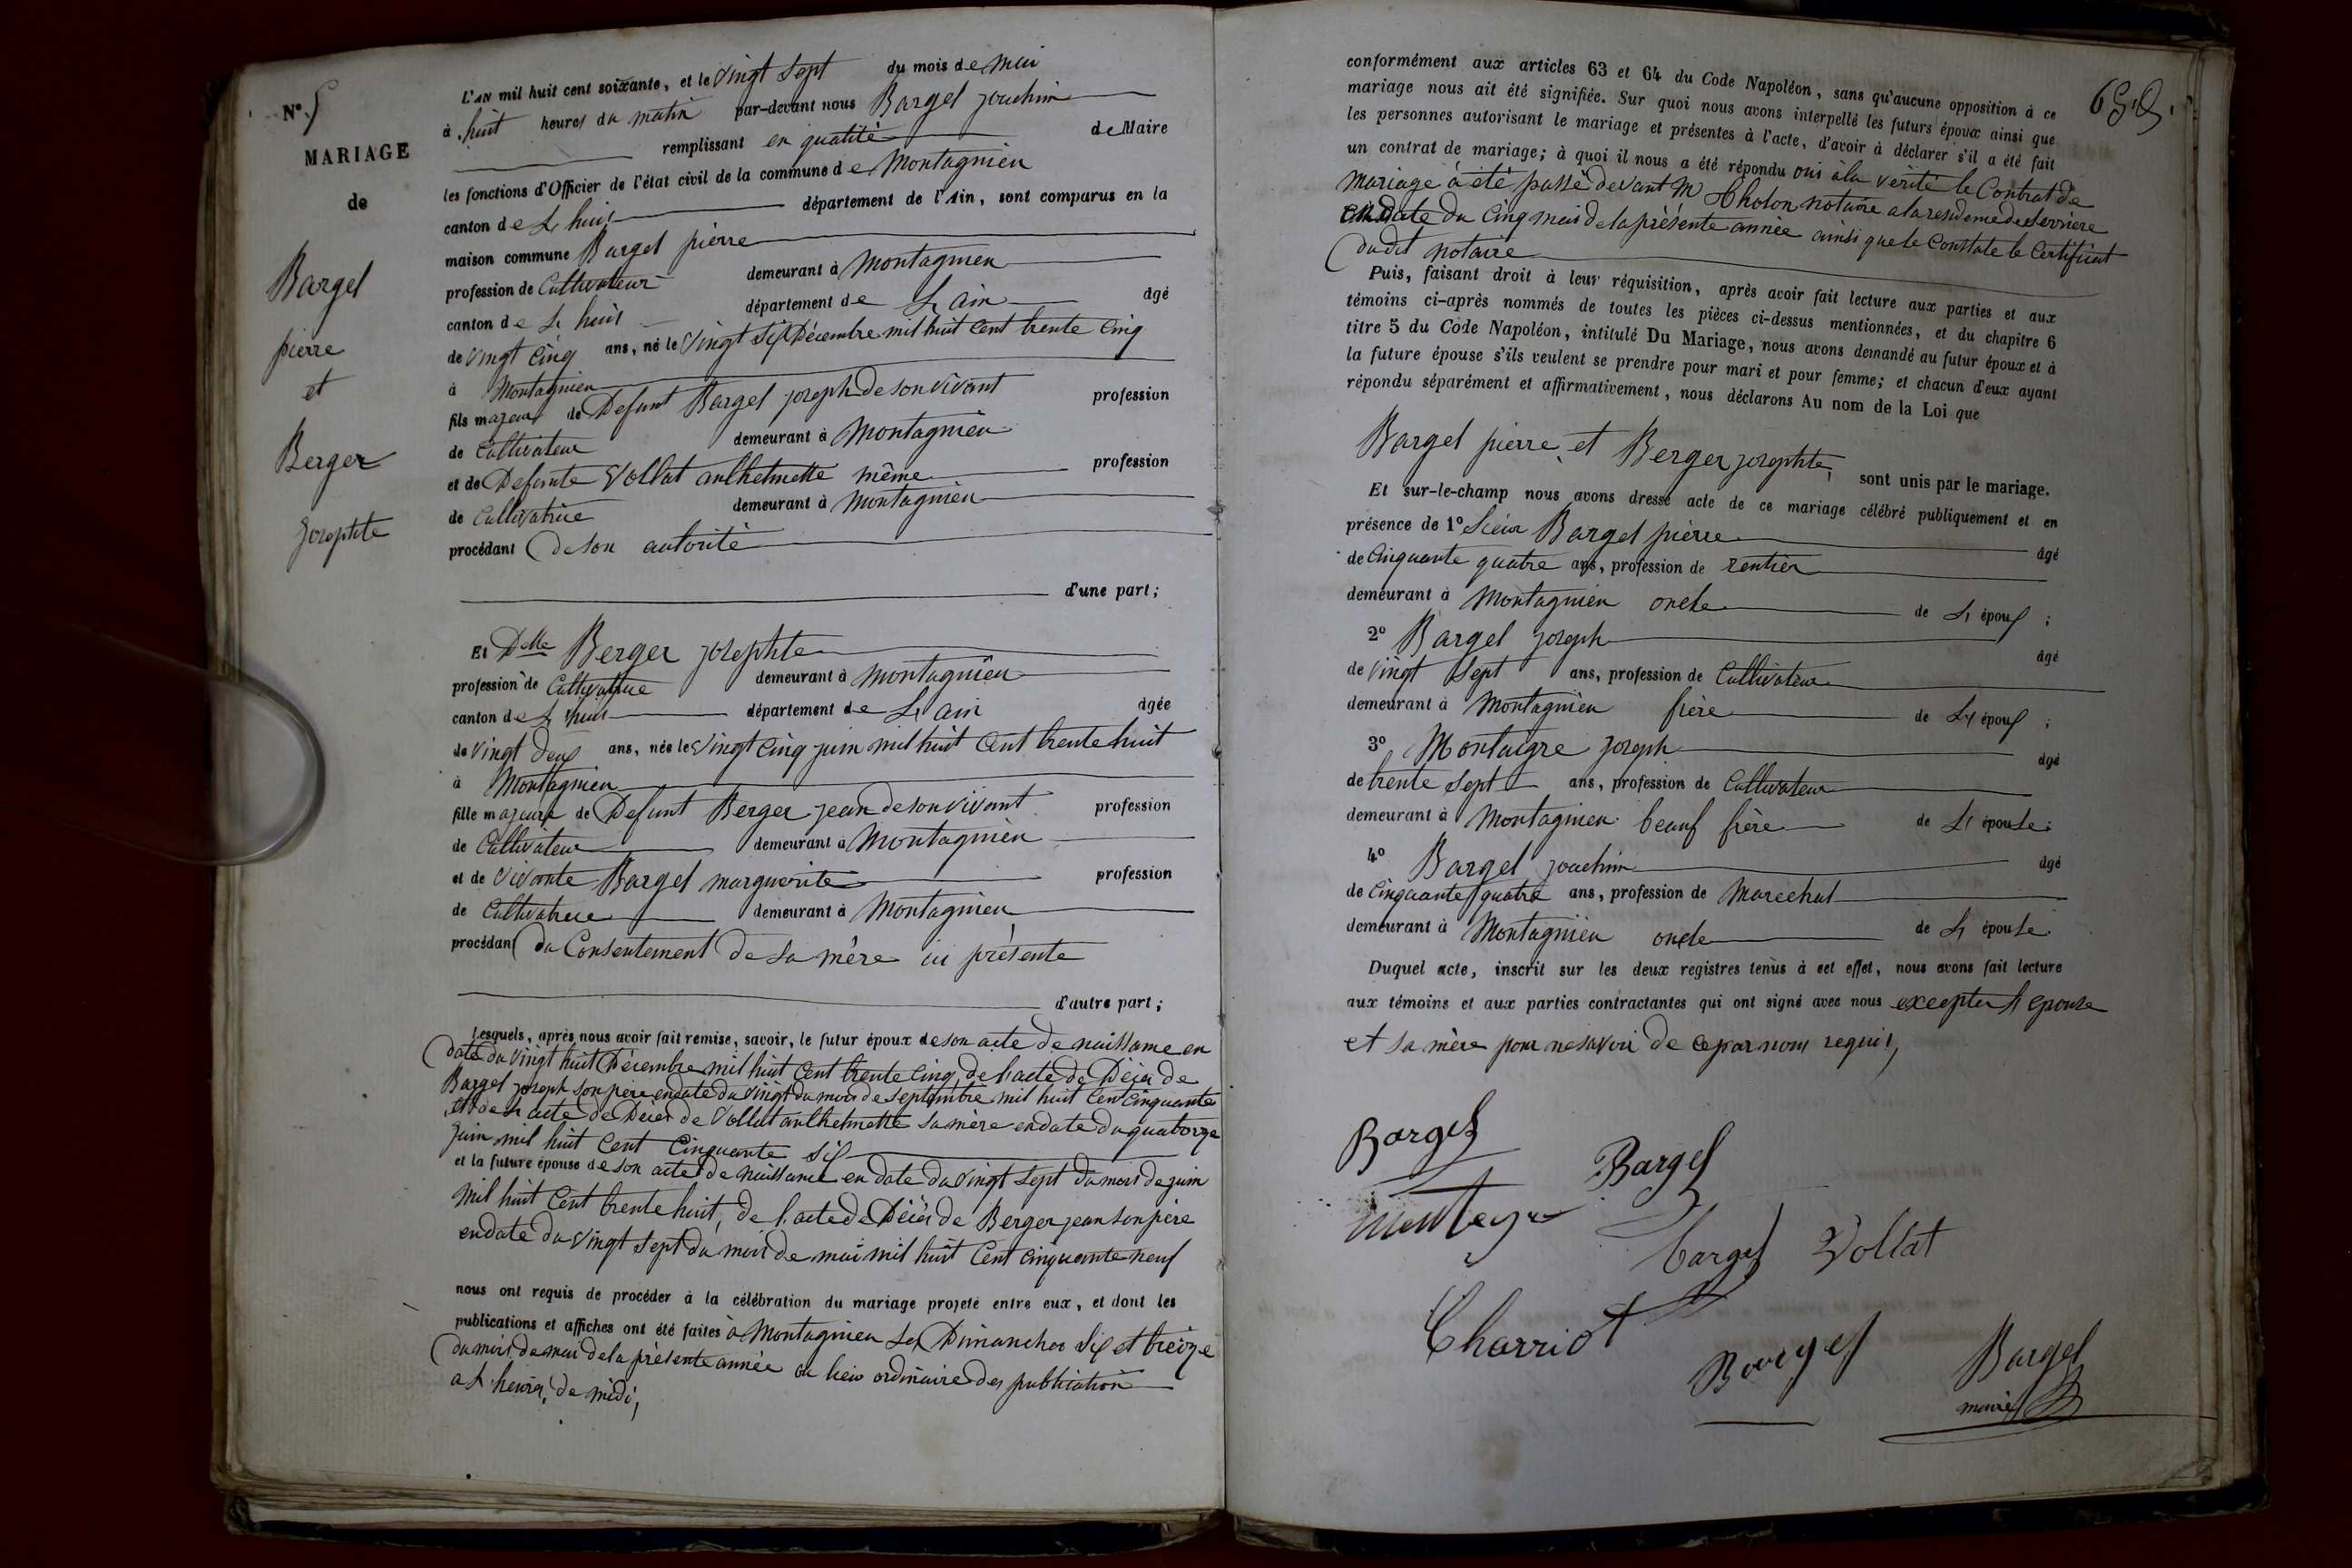 N° 5
MARIAGE
de
Bargel
pierre
et
Berger
josephte
L'AN mil huit cent soixante, et le vingt sept du mois de mai
à huit heures du matin par-devant nous Bargel joachim
remplissant en qualité de Maire
les fonctions d'Officier de l'état civil de la commune de Montagnieu
canton de L huis département de l'Ain, sont comparus en la
maison commune Bargel pierre
profession de Cultivateur demeurant à Montagnieu
canton de L huis département de L ain âgé
de vingt cinq ans, né le vingt six Décembre mil huit Cent trente Cinq
à Montagnieu
fils majeur de Defunt Bargel joseph de son vivant profession
de Cultivateur demeurant à Montagnieu
et de Defunte Vollat anthelmette même profession
de Cultivatrice demeurant à Montagnieu
procédant de son autorité
d'une part;
Et Delle Berger josephte
profession de Cultivatrice demeurant à Montagnieu
canton de L huis département de L ain âgée
de vingt deux ans, née le vingt Cinq juin mil huit Cent trente huit
à Montagnieu
fille majeure de Defunt Berger jean de son vivant profession
de Cultivateur demeurant à Montagnieu
et de vivante Bargel marguerite profession
de Cultivatrice demeurant à Montagnieu
procédant du Consentement de sa mère ici présente
d'autre part;
Lesquels, après nous avoir fait remise, savoir, le futur époux de son acte de naissance en
date du vingt huit Décembre mil huit Cent trente Cinq, de l'acte de Décès de
Bargel joseph son père en date du vingt du mois de septembre mil huit Cent Cinquante
et de l acte de Décès de Vollat anthelmette sa mère en date du quatorze
juin mil huit Cent Cinquante six
et la future épouse de son acte de naissance en date du vingt sept du mois de juin
mil huit Cent trente huit, de l'acte de Décès de Berger jean son père
en date du vingt sept du mois de mai mil huit Cent Cinquante neuf
nous ont requis de procéder à la célébration du mariage projeté entre eux, et dont les
publications et affiches ont été faites à Montagnieu Les Dimanches six et treize
du mois de mai de la présente année au lieu ordinaire des publication
a L heure de midi,
conformément aux articles 63 et 64 du Code Napoléon, sans qu'aucune opposition à ce
mariage nous ait été signifiée. Sur quoi nous avons interpellé les futurs époux ainsi que
les personnes autorisant le mariage et présentes à l'acte, d'avoir à déclarer s'il a été fait
un contrat de mariage; à quoi il nous a été répondu oui à la vérité le Contrat de
mariage à été passé devant M notaire a la residence de Serriere
en date du Cinq mai de la présente année ainsi que le Constate le Certificat
dudit notaire
Puis, faisant droit à leur réquisition, après avoir fait lecture aux parties et aux
témoins ci-après nommés de toutes les pièces ci-dessus mentionnées, et du chapitre 6
titre 5 du Code Napoléon, intitulé Du Mariage, nous avons demandé au futur époux et à
la future épouse s'ils veulent se prendre pour mari et pour femme; et chacun d'eux ayant
répondu séparément et affirmativement, nous déclarons Au nom de la Loi que
Bargel pierre et Berger josephte, sont unis par le mariage.
Et sur-le-champ nous avons dressé acte de ce mariage célébré publiquement et en
présence de 1° Sieur Bargel pierre âgé
de Cinquante quatre ans, profession de rentier
demeurant à Montagnieu oncle de L époux;
2° Bargel joseph âgé
de vingt sept ans, profession de Cultivateur
demeurant à Montagnieu frère de L époux;
3° Montaigre joseph âgé
de trente sept ans, profession de Cultivateur
demeurant à Montagnieu beauf frère de L épouse;
4° Bargel joachim âgé
de Cinquante quatre ans, profession de Marechal
demeurant à Montagnieu oncle de L épouse.
Duquel acte, inscrit sur les deux registres tenus à cet effet, nous avons fait lecture
aux témoins et aux parties contractantes qui ont signé avec nous excepter L epouse
et sa mère pour ne savoir de ce par nous requis,
Bargel
Bargel
Bargel Vollat
Charriot
Bargel
maire